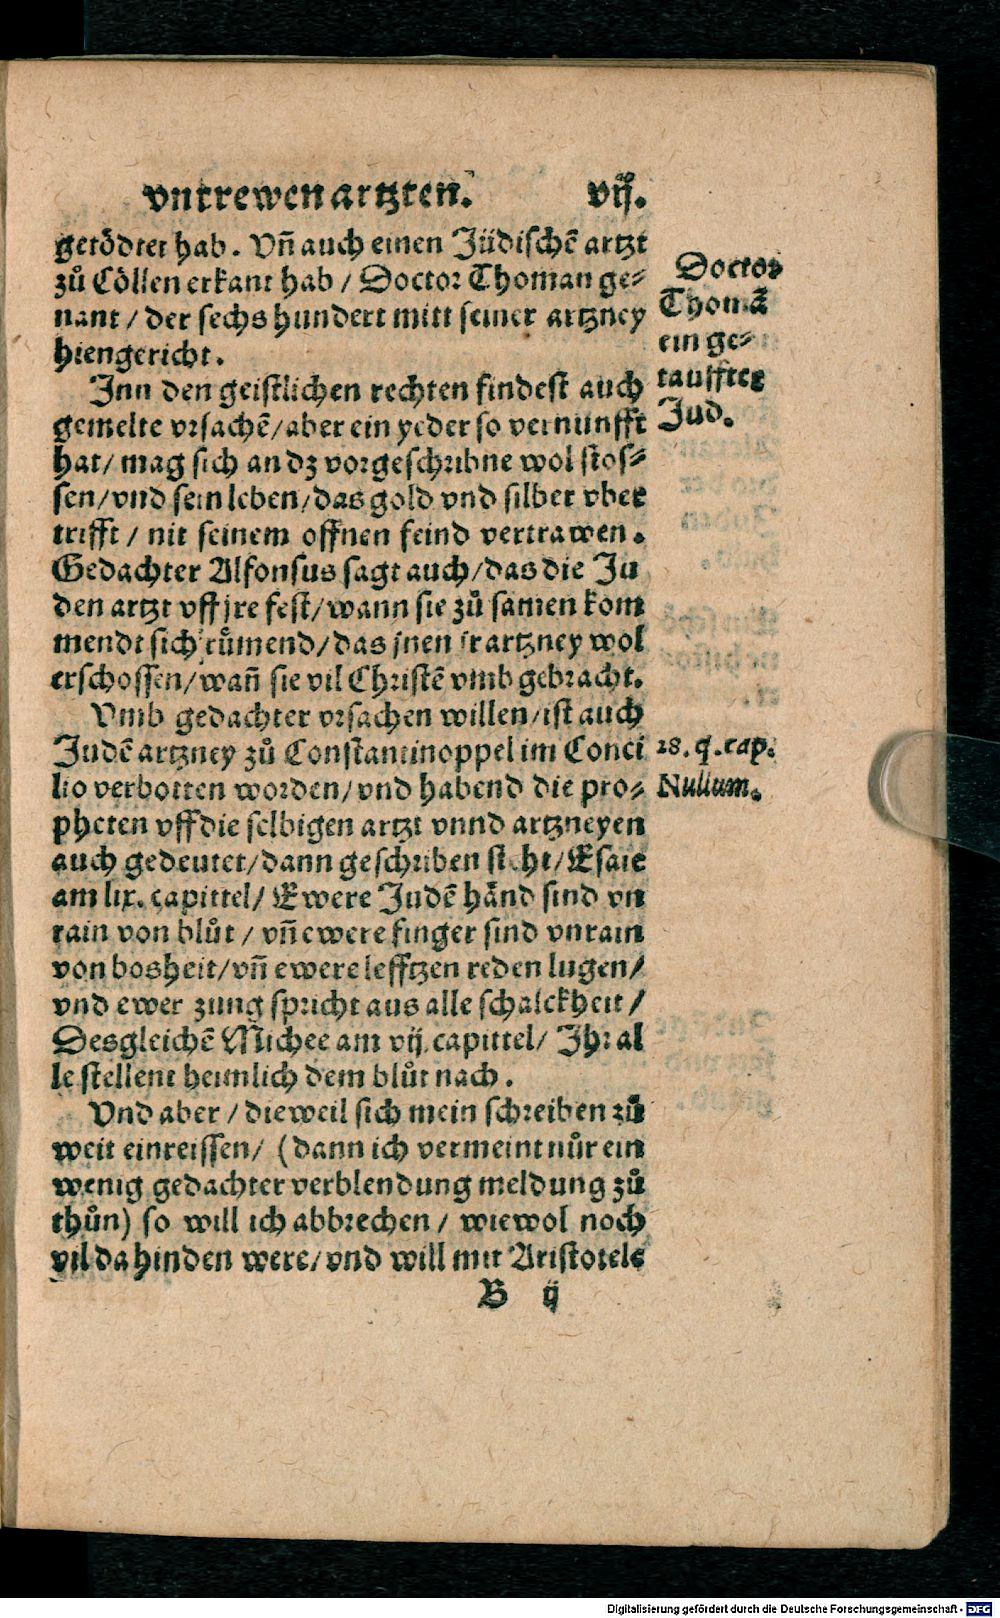 vntrewen artzten. vij.
getödtet hab. Vñ auch einen Jüdischē artzt
zů Cöllen erkant hab / Doctor Thoman ge⸗
nant / der sechs hundert mitt seiner artzney
hiengericht.
Doctor
Thomā
ein ge⸗
tauffter
Jud.
Jnn den geistlichen rechten findest auch
gemelte vrsachē/ aber ein yeder so vernunfft
hat/ mag sich an dz vorgeschribne wol stos⸗
sen/ vnd sein leben/ das gold vnd silber vber
trifft / nit seinem offnen feind vertrawen.
Gedachter Alfonsus sagt auch/ das die Ju
den artzt vff jre fest/ wann sie zů samen kom
mendt sich růmend/ das jnen ir artzney wol
erschossen/ wañ sie vil Christē vmb gebracht.
Vmb gedachter vrsachen willen/ ist auch
Judē artzney zů Constantinoppel im Conci
lio verbotten worden/ vnd habend die pro⸗
pheten vff die selbigen artzt vnnd artzneyen
auch gedeutet/ dann geschriben steht/ Esaie
am lix. capittel/ Ewere Judē hānd sind vn
rain von blůt / vñ ewere finger sind vnrain
von bosheit/ vñ ewere lefftzen reden lugen/
vnd ewer zung spricht aus alle schalckheit /
Desgleichē Michee am vij. capittel/ Jhr al
le stellent heimlich dem blůt nach.
28. q. cap.
Nullum.
Vnd aber / dieweil sich mein schreiben zů
weit einreissen/ (dann ich vermeint nůr ein
wenig gedachter verblendung meldung zů
thůn) so will ich abbrechen / wiewol noch
vil da hinden were/ vnd will mit Aristotele
B ij
Digitalisierung gefördert durch die Deutsche Forschungsgemeinschaft - DFG